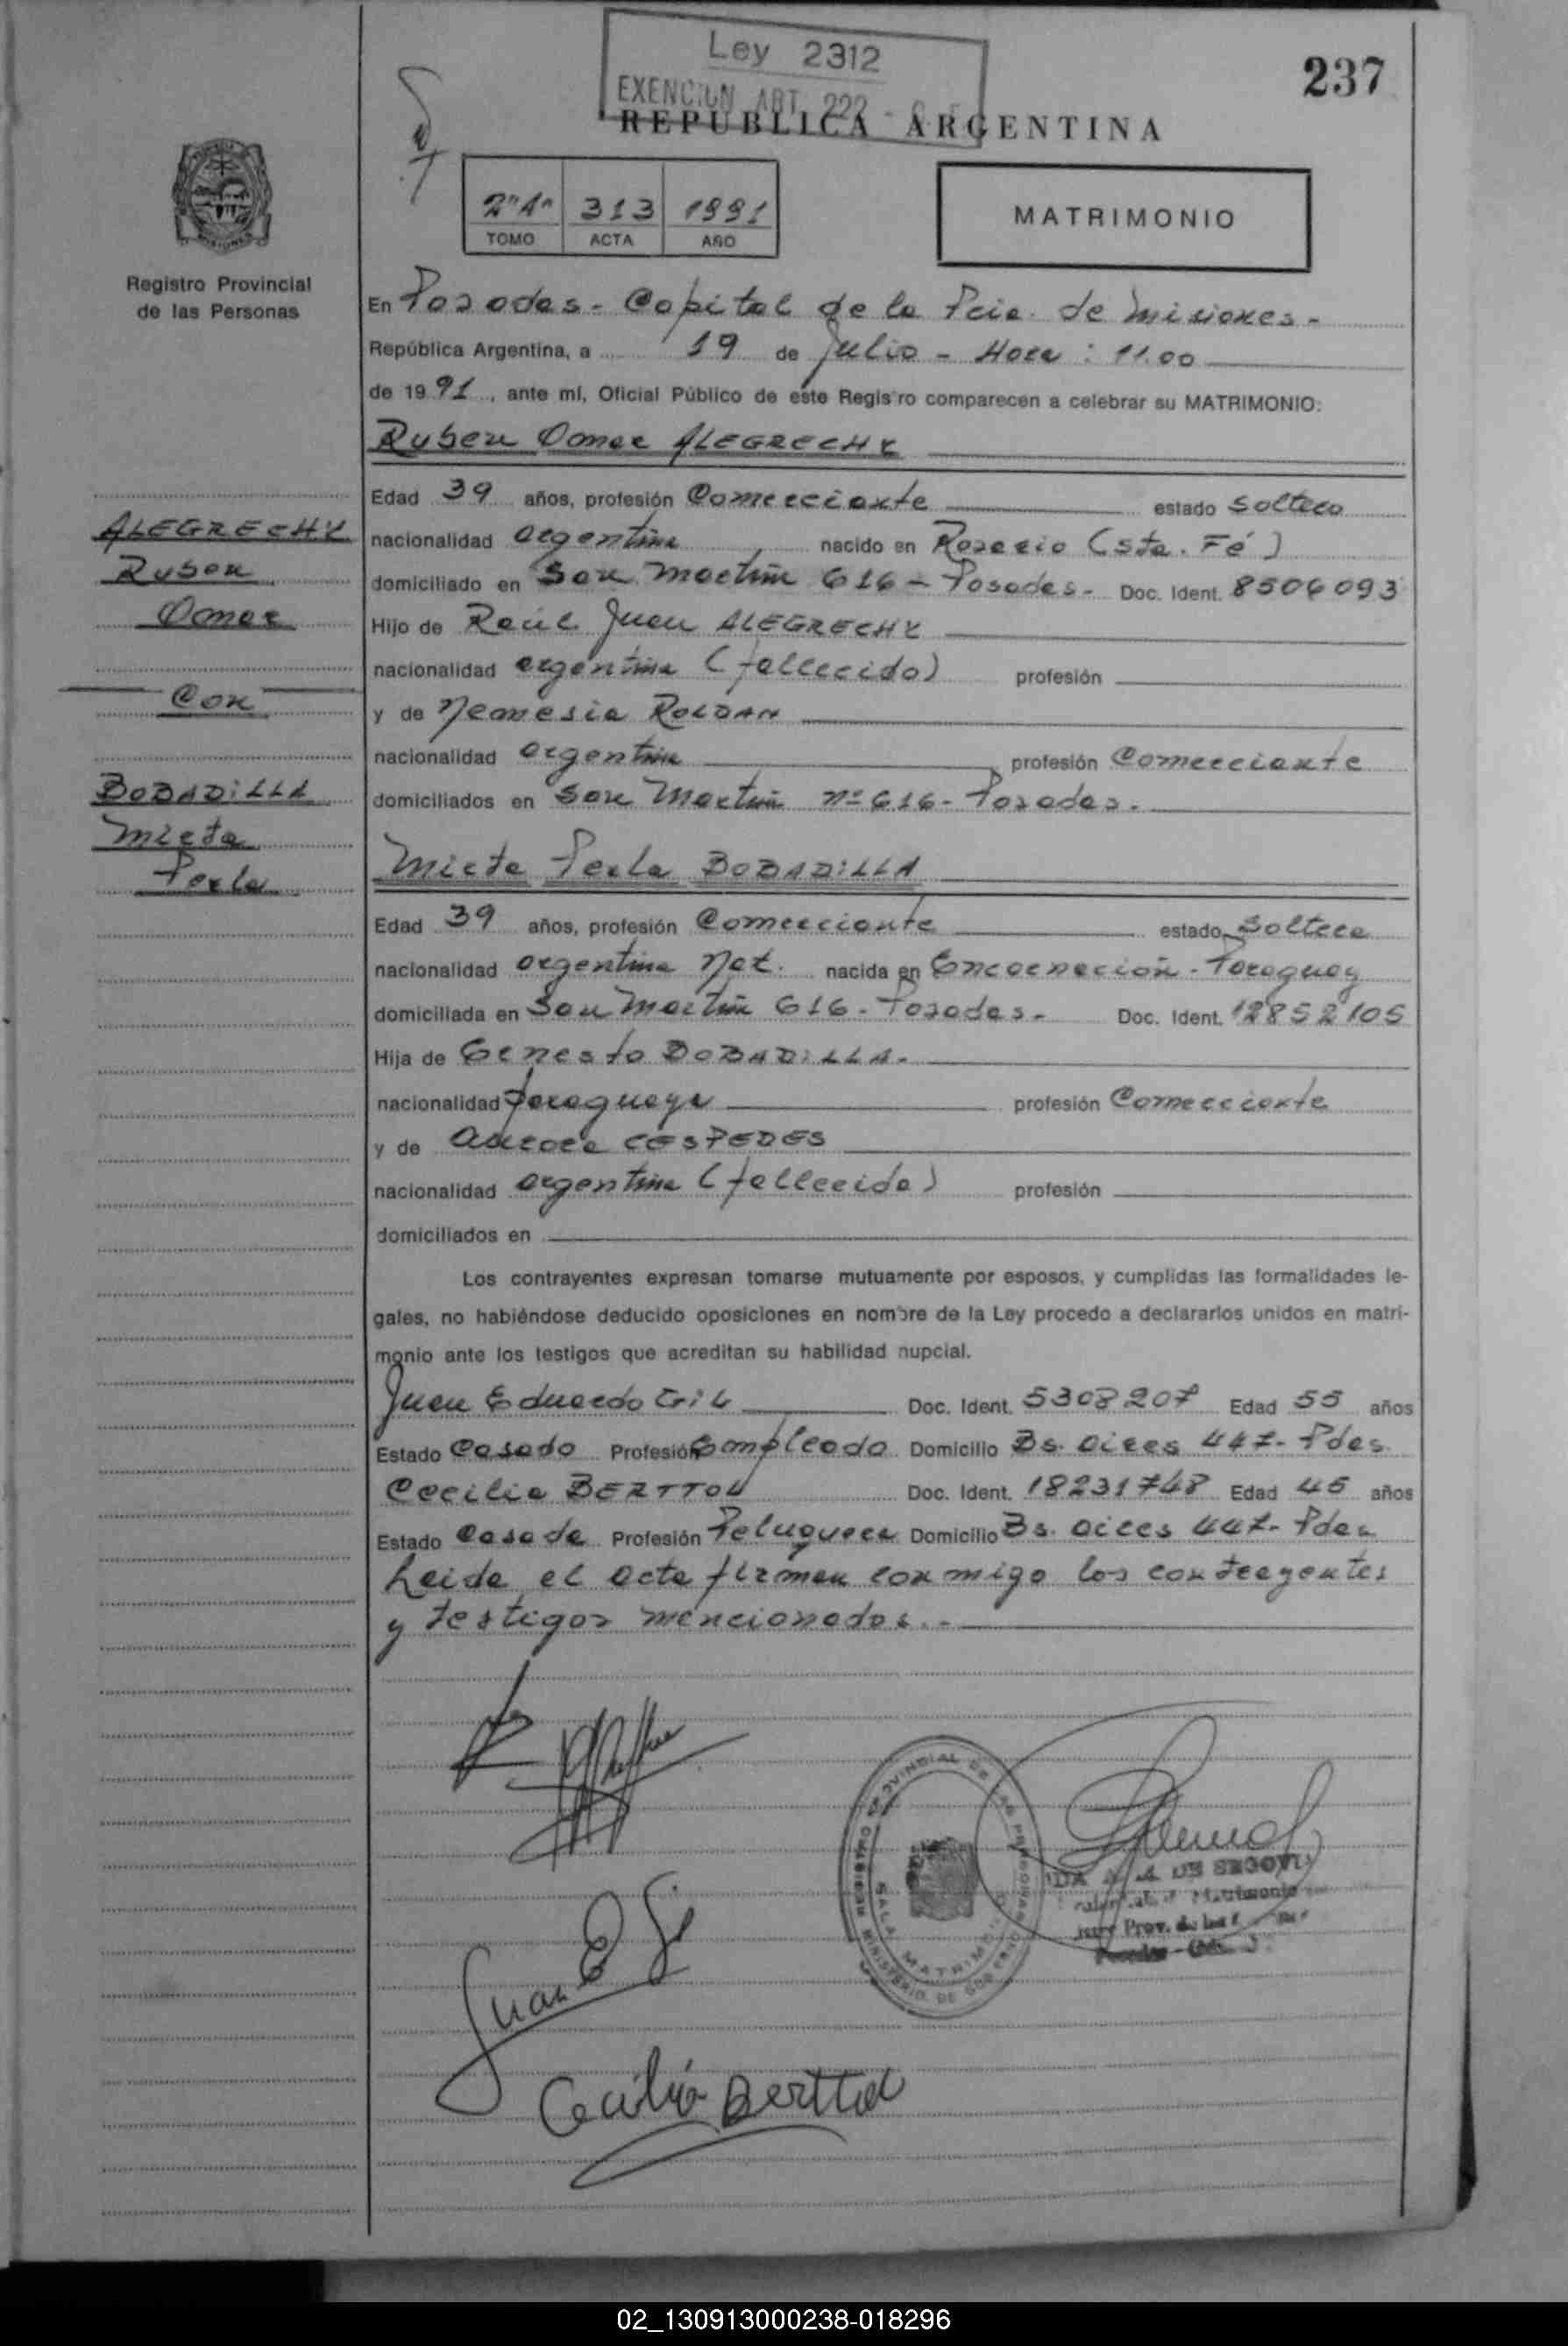 Ley 2312
EXENCION ART. 222 -
237
REPUBLICA ARGENTINA
2º "A" 313 1991
TOMO ACTA AÑO
MATRIMONIO
MISIONES
Registro Provincial
de las Personas
En Posadas - Capital de la Pcia. de Misiones -
República Argentina, a 19 de Julio - Hora : 11.00
de 1991, ante mí, Oficial Público de este Registro comparecen a celebrar su MATRIMONIO:
Ruben Omar ALEGRECHY
Edad 39 años, profesión Comerciante estado Soltero
ALEGRECHY
nacionalidad argentina nacido en Rosario (Sta. Fé)
Ruben
domiciliado en San Martin 616 - Posadas - Doc. Ident. 8506093
Omar
Hijo de Raúl Juan ALEGRECHY
nacionalidad argentina (fallecido) profesión
Con
y de Nemesia ROLDAN
nacionalidad argentina profesión Comerciante
BOBADILLA
domiciliados en San Martin nº 616 - Posadas.
Mirta
Perla
Mirta Perla BOBADILLA
Edad 39 años, profesión Comerciante estado Soltera
nacionalidad argentina Nat. nacida en Encarnación - Paraguay
domiciliada en San Martin 616 - Posadas - Doc. Ident. 12852105
Hija de Ernesto BOBADILLA.
nacionalidad paraguaya profesión Comerciante
y de Aurora CESPEDES
nacionalidad argentina (fallecida) profesión
domiciliados en
Los contrayentes expresan tomarse mutuamente por esposos, y cumplidas las formalidades le-
gales, no habiéndose deducido oposiciones en nombre de la Ley procedo a declararlos unidos en matri-
monio ante los testigos que acreditan su habilidad nupcial.
Juan Eduardo Gil Doc. Ident. 5308207 Edad 55 años
Estado Casado Profesión Empleado Domicilio Bs. Aires 447 - Pdas.
Cecilia BERTTOL Doc. Ident. 18231748 Edad 45 años
Estado Casada Profesión Peluquera Domicilio Bs. Aires 447 - Pdas.
Leida el acta firman conmigo los contrayentes
y testigos mencionados. -
REGISTRO PROVINCIAL DE LAS PERSONAS
SALA MATRIMONIO
MINISTERIO DE GOBIERNO
DE SEGOVIA
Matrimonio
Prov. de las
Posadas - (Mnes.)
Juan E Gil
Cecilia Berttol
02_130913000238-018296